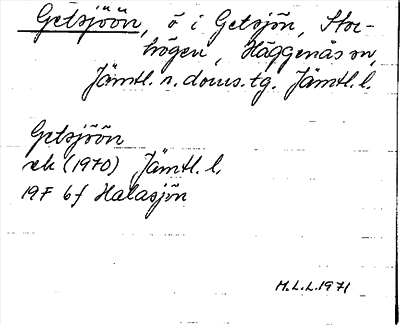 Getsjöön, ö i Getsjön, Stor-
högen, Häggenås sn,
Jämtl. n. doms. tg. Jämtl. l.
Getsjöön
ek (1970) Jämtl. l.
19F 6f Halasjön
M.L.L. 1971